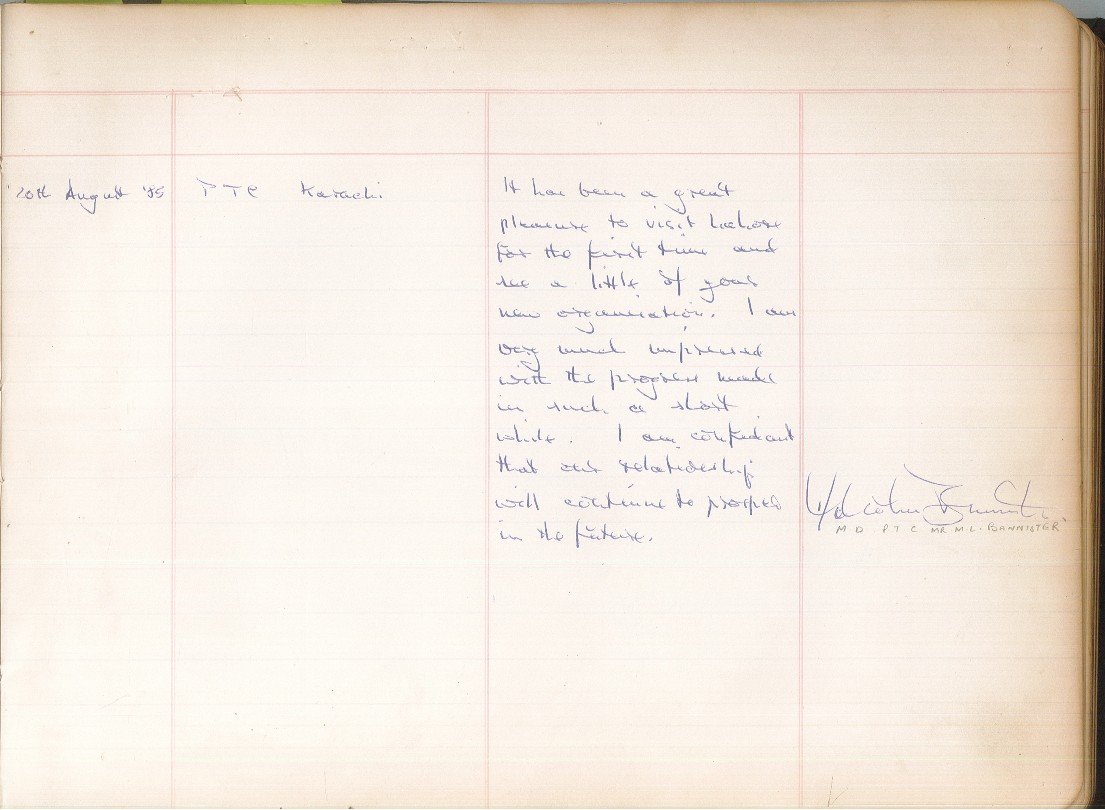 20th August '85 PTC Karachi
It has been a great
pleasure to visit Lahore
for the first time and
see a little of your
new organisation. I am
very much impressed
with the progress made
in such a short
while. I am confidant
that our relationship
will continue to prosper
in the future.
Malcolm Bannister
M D. P T C MR M L. BANNISTER